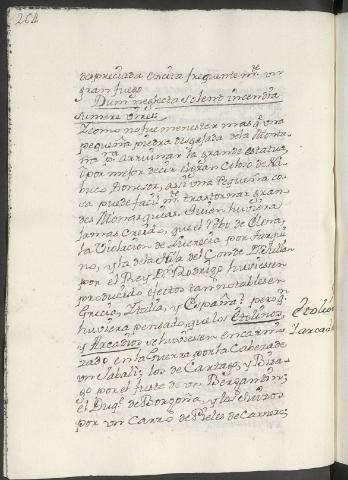 204
despreciada excita frequentemte. vn
gran fuego
Dum neglecta solent incendia
sumere vires
Y como no fue menester mas q. vna
pequeña piedra desgajada de la Monta-
ña pa. arruinar la grande estatua,
ò por mejor decir el gran Coloso de Na-
buco Donosor, assi vna pequeña co-
sa puede facilmte. trastornar gran-
des Monarquias. Quien huviera
jamas creido, que el robo de Elena,
la Violacion de Lucrecia por Tarqui-
no, y la de la Hija del Conde Dn. Julian
por el Rey Dn. Rodrigo huviessen
producido efectos tan notables en
Grecia, Italia, y España? pero q.
huviera pensado, que los Etolinos,
y Arcadios se huviessen encarni-
zado en la Guerra por la Cabeza de
vn Jabalì; los de Cartago, y Bisa-
go por el fuste de vn Bergantin;
el Duqe. de Borgoña, y los Suizos
por vn Carro de Pieles de Carnero;
Etolios
Y arcad